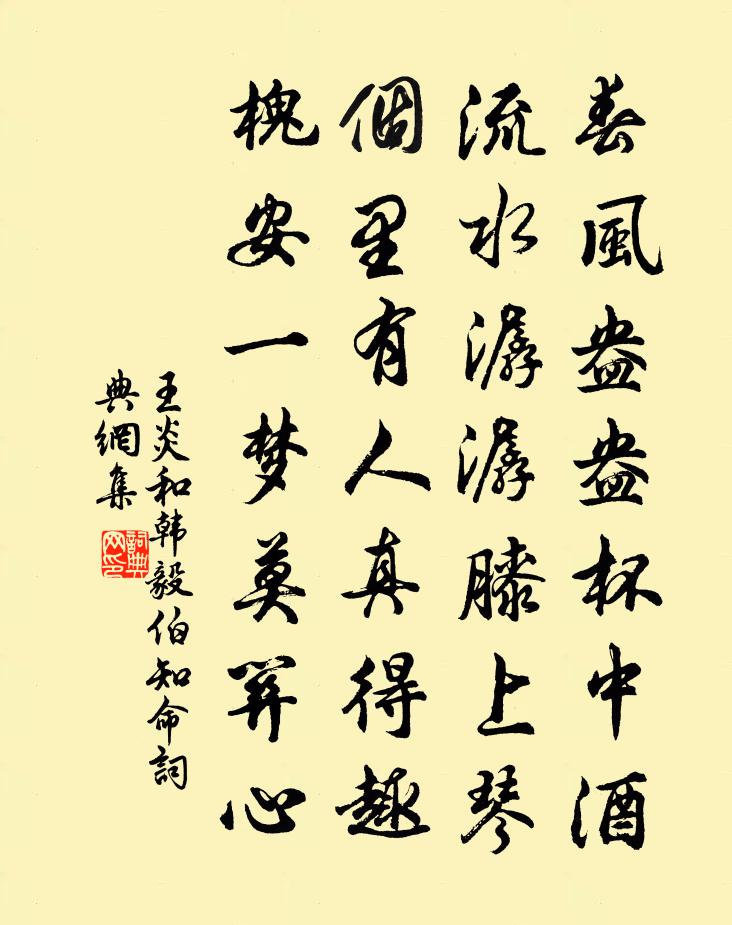 春風盎盎杯中酒
流水潺潺膝上琴
個里有人真得趣
槐安一梦莫關心
王炎和韩毅伯知命詞
典網集
詞典网印